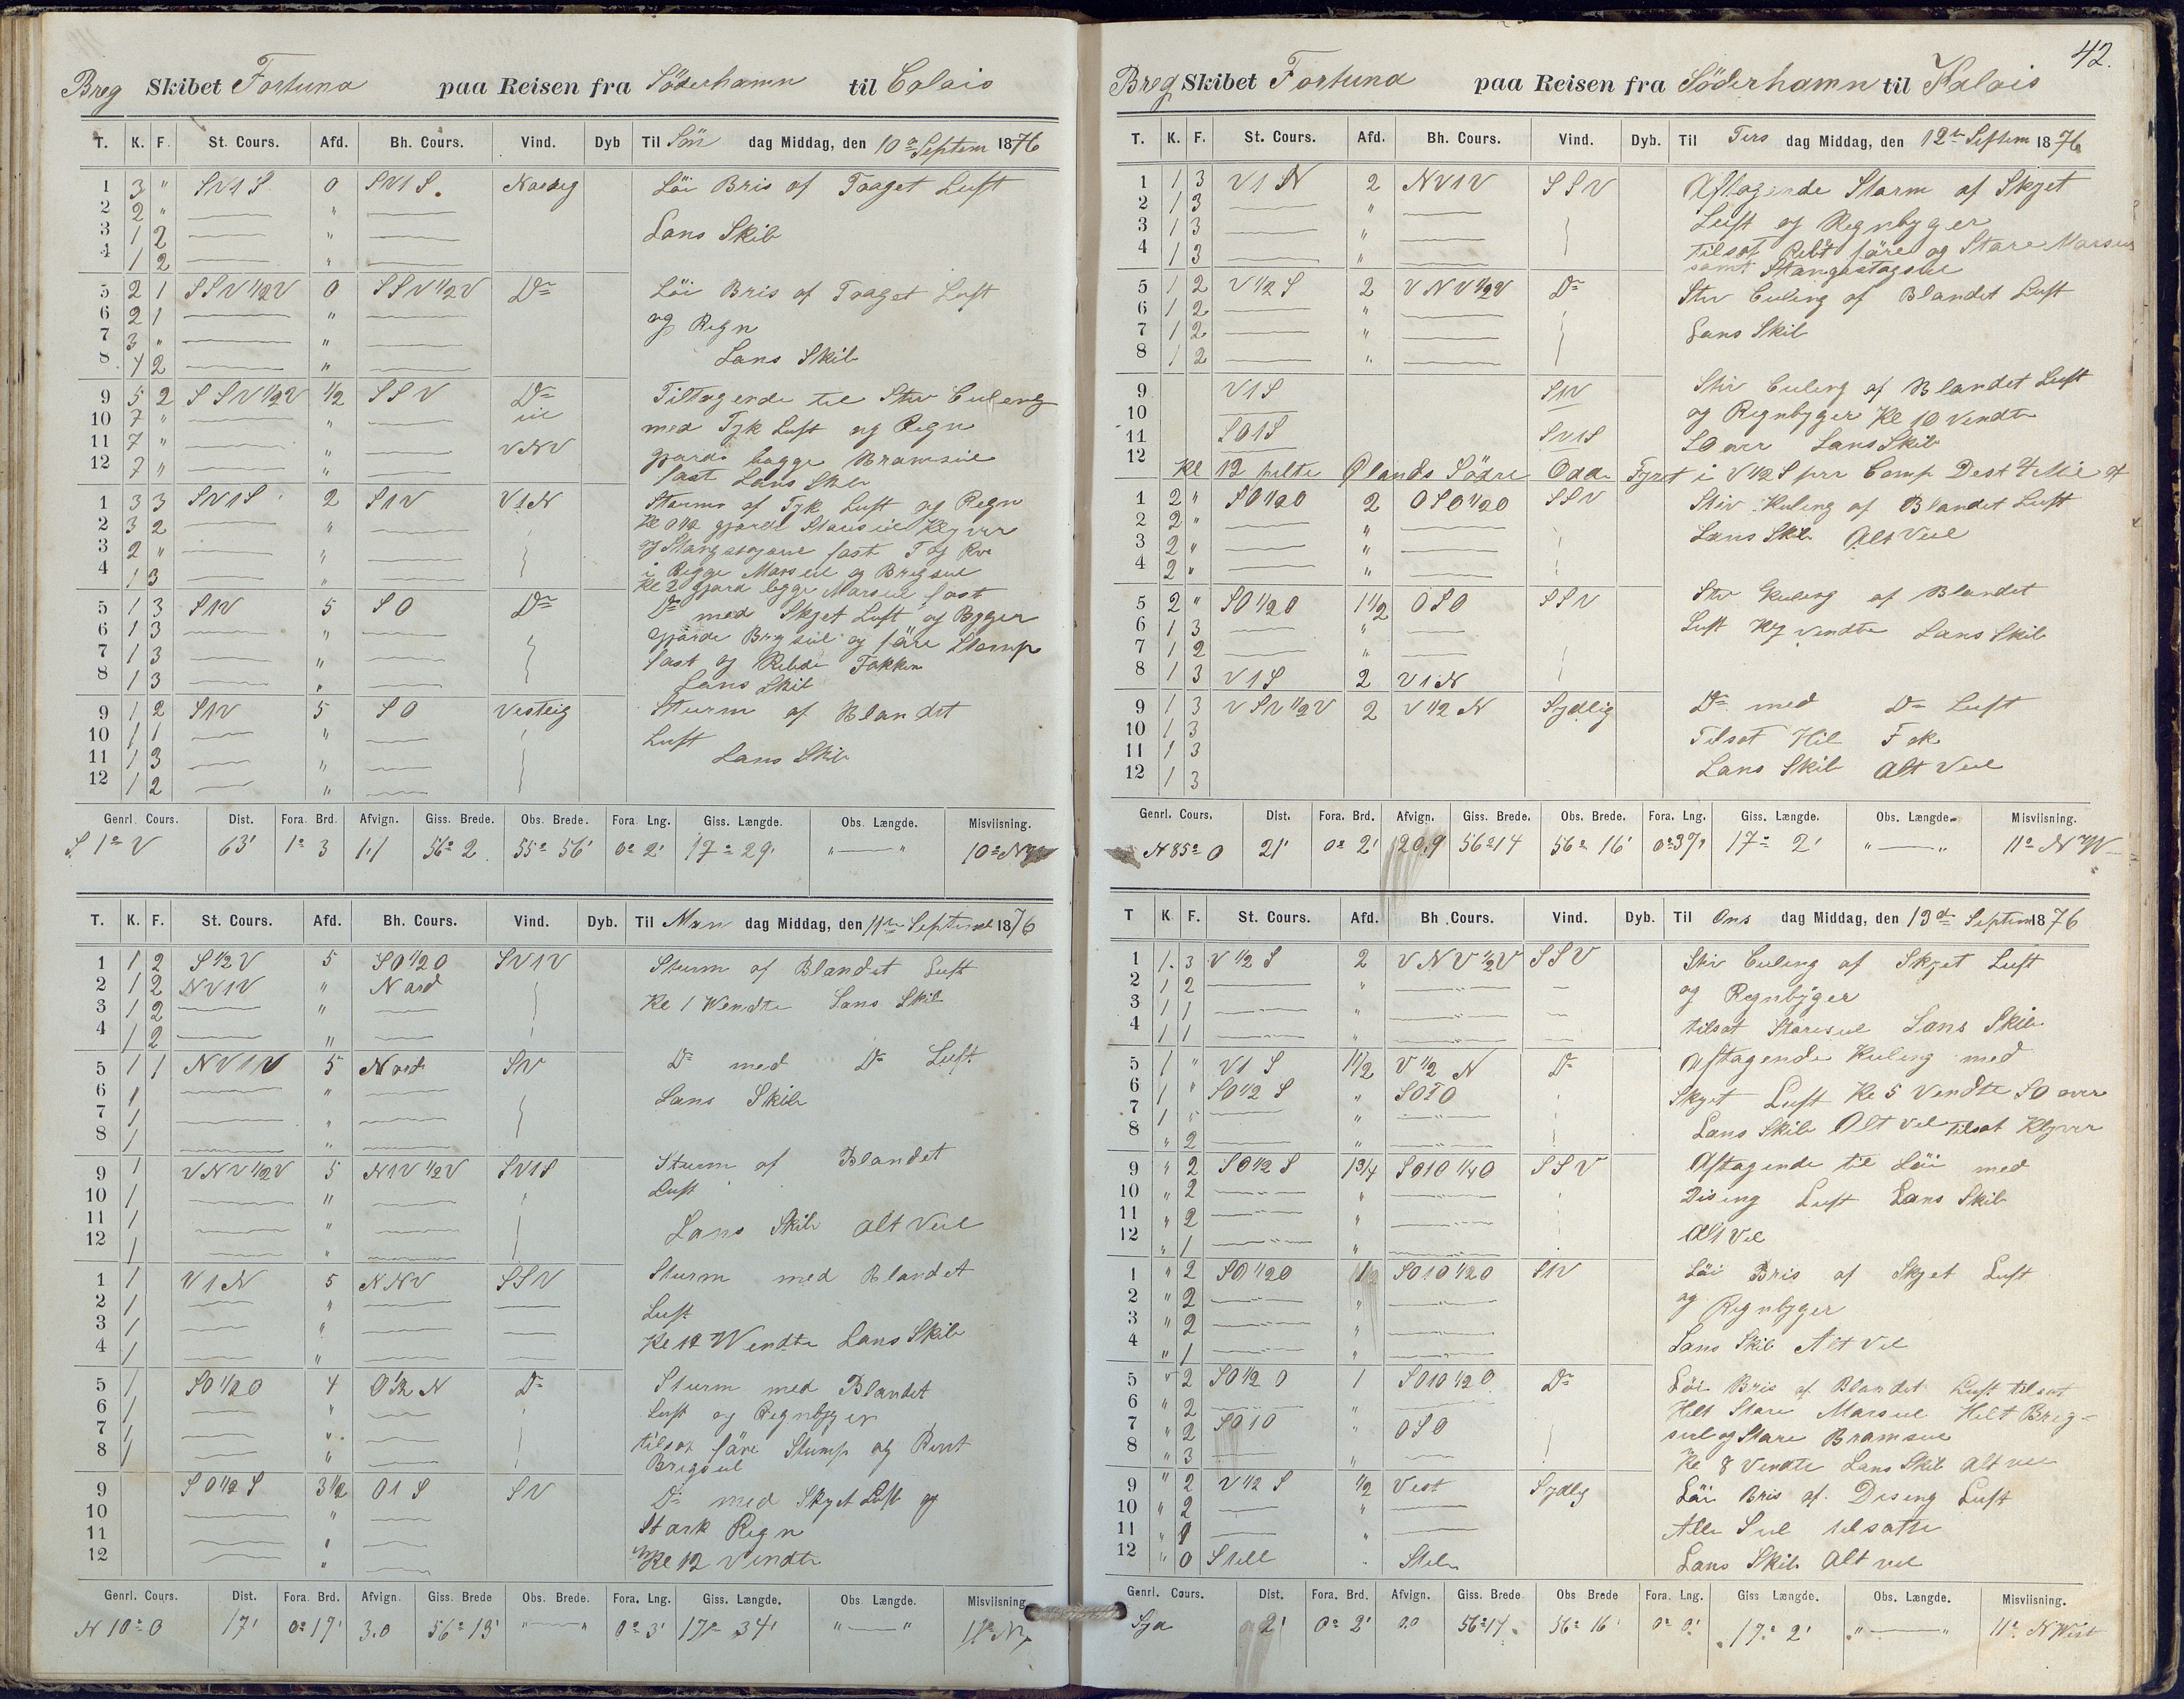 Breg Skibet Fortuna paa Reisen fra Söderhamn til Calais
T. K. F. St. Cours. Afd. Bh. Cours. Vind. Dyb Til Sön dag Middag, den 10de Septem 1876
1 3 " SV1S 0 SV1S. Nordlig Löi Bris af Taaget Luft
2 2 " "
3 1 2 " Lans Skib
4 1 2 "
5 2 1 SSV 1/2 V 0 SSV 1/2 V Do Löi Bris af Taaget Luft
6 2 1 " og Regn
7 3 " "
8 4 2 " Lans Skib
9 5 2 SSV 1/2 V 1/2 SSV Do Tiltagende til Stiv Culeng
10 7 " " til med Tyk Luft og Regn
11 7 " " VNV gjorde begge Bramseil
12 7 " " fast Lans Skib
1 3 3 SV1S 2 S1V V1N Sturm af Tyk Luft og Regn
2 3 2 " Kl 012 gjorde Storseil Klyver
3 2 " " og Stangstagseil fast T og Rev
4 1 3 " i Begge Mars eil og Brigseil
Kl 2 gjord begge Marseil fast
5 1 3 S1V 5 SO Do Do med Skyet Luft og Bygger
6 1 3 " gjorde Brigseil og före Stump
7 1 3 " fast og Rebede Fokken
8 1 3 " Lans Skib
9 1 2 S1V 5 SO Vestlig Sturm af Blandet
10 1 1 " Luft
11 1 3 " Lans Skib
12 1 2 "
Genrl. Cours. Dist. Fora. Brd. Afvign. Giss. Brede. Obs. Brede. Fora. Lng. Giss. Længde. Obs. Længde. Misviisning.
S 1° V 63' 1° 3 1.1 56° 2 55° 56' 0° 2' 17° 29' " " 10° NV
T. K. F. St. Cours. Afd. Bh. Cours. Vind. Dyb. Til Man dag Middag, den 11te Septembr 1876
1 1 2 S 1/2 V 5 SO 1/2 O SV1V Sturm af Blandet Luft
2 1 2 NV1V " Nord
3 1 2 " Kl 1 Wendte Lans Skib
4 1 2 "
5 1 1 NV1V 5 Nord SV Do med Do Luft
6 1 " Lans Skib
7 1 "
8 1 "
9 1 VNV 1/2 V 5 N1V 1/2 V SV1S Sturm af Blandet
10 1 " Luft
11 1 " Lans Skib alt Vel
12 1 "
1 1 V1N 5 NNV SSV Sturm med Blandet
2 1 " Luft
3 1 " Kl 12 Wendte Lans Skib
4 1 "
5 1 SO 1/2 O 4 O 1/2 N Do Sturm med Blandet
6 1 " Luft og Regnbyger
7 1 " tilsat före Stump og Revet
8 1 " Brigseil
9 SO 1/2 S 3 1/2 O1S SV Do med Skyet Luft og
10 " Stark Regn
11 "
12 " Kl 12 Vendte
Genrl. Cours. Dist. Fora. Brd. Afvign. Giss. Brede Obs. Brede. Fora. Lng. Giss. Længde. Obs. Længde. Misviisning.
N 10° O 17' 0° 17' 3.0 56° 13' " " 0° 3' 17° 34' " " 11° NV
42.
Breg Skibet Fortuna paa Reisen fra Söderhamn til Kalais
T. K. F. St. Cours. Afd. Bh. Cours. Vind. Dyb. Til Tirs dag Middag, den 12te Septem 1876
1 1 3 V1N 2 NV1V SSV Aftagende Storm af Skyet
2 1 3 " Luft og Regnbyger
3 1 3 " tilsat Rebt före og Store Marseil
4 1 3 " samt Stangestagseil
5 1 2 V 1/2 S 2 VNV 1/2 V Do Stiv Culing af Blandet Luft
6 1 2 "
7 1 2 " Lans Skib
8 1 2 "
9 V1S S1V Stiv Culeng af Blandet Luft
10 og Regnbyger Kl 10 Vendte
11 SO1S SV1S SO over Lans Skib
12 Kl 12 pelte Ølands Södre Odde Fyret i V 1/2 S per Comp Dest 4 Mil af
1 2 " SO 1/2 O 2 OSO 1/2 O SSV Stiv Kuling af Blandet Luft
2 2 " "
3 2 " " Lans Skib Alt Vel
4 2 " "
5 2 " SO 1/2 O 1 1/2 OSO SSV Stiv Kuleng af Blandet
6 1 3 " Luft Kl 7 vendte Lans Skib
7 1 2 "
8 1 3 V1S 2 V1N
9 1 3 VSV 1/2 V 2 V 1/2 N Sydlig Do med Do Luft
10 1 3 Tilsat Hil Fok
11 1 3
12 1 3 Lans Skib Alt Vel
Genrl. Cours. Dist. Fora. Brd. Afvign. Giss. Brede. Obs. Brede. Fora. Lng. Giss. Længde. Obs. Længde. Misviisning.
N 85° O 21' 0° 2' 20.9 56° 14 56° 16' 0° 37' 17° 2' " " 11° N W
T K F. St. Cours. Afd. Bh. Cours. Vind. Dyb. Til Ons dag Middag, den 13de Septem 1876
1 1. 3 V 1/2 S 2 VNV 1/2 V SSV Stiv Culing af Skyet Luft
2 1 2 " og Regnbyger
3 1 1 "
4 1 1 " tilsat Storseil Lans Skib
5 1 " V1S 1 1/2 V 1/2 N Do Aftagende Kuleng med
6 1 " SO 1/2 S " SOTO Skyet Luft Kl 5 Vendte SO over
7 1 " " Lans Skib Alt vel tilsat Klyver
8 " 2 "
9 " 2 SO 1/2 S 1 3/4 SO1O 1/4 O SSV Aftagende til Löi med
10 " 2 " Dising Luft Lans Skib
11 " 2 "
12 " 1 " Alt Vel
1 " 2 SO 1/2 O 1 SO1O 1/2 O S1V Löi Bris af Skyet Luft
2 " 2 " og Regnbyger
3 " 2 "
4 " 1 " Lans Skib Alt Vel
5 " 2 SO 1/2 O 1 SO1O 1/2 O Do Löi Bris af Blandet Luft tilsat
6 " 2 " Hilt Store Marseil Hilt Brig-
7 " 2 SO1O " OSO seil og Store Bramseil
8 " 3 " Kl 8 Vendte Lans Skib alt vel
9 " 2 V 1/2 S 1/2 Vest Sydlig Löi Bris af Diseng Luft
10 " 2 "
11 " 1 Alle Seil tilsatte
12 " 0 Still Stile Lans Skib alt vel
Genrl. Cours. Dist. Fora. Brd. Afvign. Giss. Brede Obs Brede Fora. Lng. Giss Længde. Obs. Længde. Misviisning.
2' 0° 2' 0.0 56° 14 56° 16' 0° 0' 17° 2' " " 11° N West